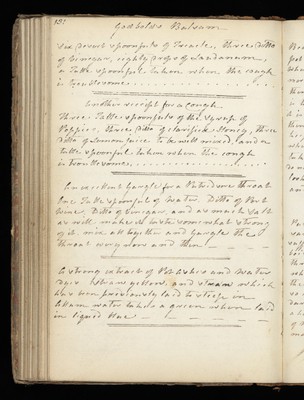 Godbolds Balsam
Six desert spoonfuls of Treacle, Three Ditto
of Vinegar, eighty drops of Laudanum,
a Table spoonful taken when the cough
is troublesome
Another receipt for a cough
Three Table spoonfuls of the Syrup of
Poppies, three ditto of clarified Honey, three
ditto of Lemon juice to be well mixed, and a
table spoonful taken when the cough
is troublesome
An excellent Gargle for a Putrid sore throat
One Table spoonful of Water, Ditto of Port
Wine, Ditto of Vinegar, and as much salt
as will make it taste somewhat strong
of it. mix all together and Gargle the
throat every now and then
A strong extract of Pot Ashes and Water
dyes Straw yellow, and which
has been previously laid to steep in
Allum water takes a green when laid
in liquid blue